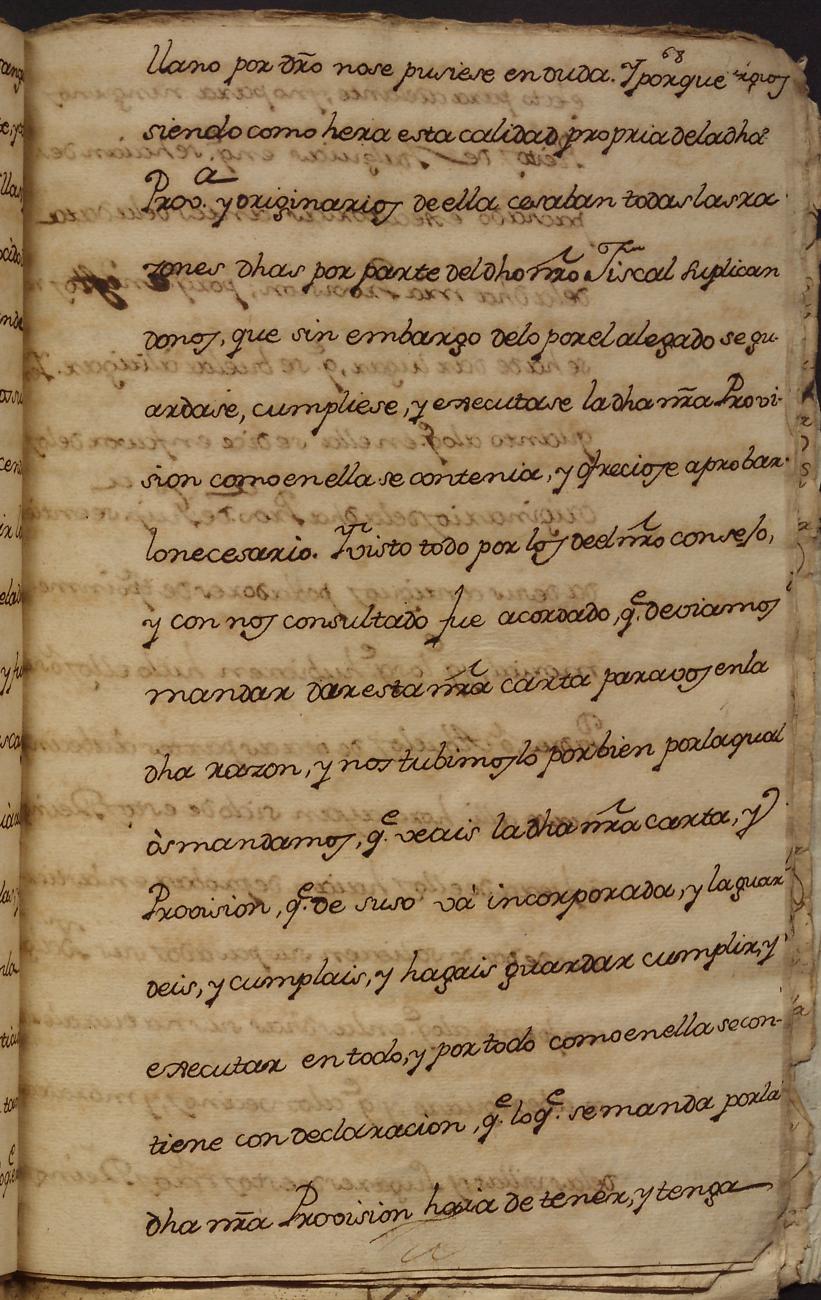 68
llano por dr̃o nose pusiese en duda. Y porque
siendo como hera esta calidad propria deladhã
Prov.a y originarios de ella cesaban todas lasra-
zones dhas por parte deldho nr̃o Fiscal suplican
donos, que sin embargo delo porel alegado se gu-
ardase, cumpliese, y executase ladha nr̃a Provi-
sion como en ella se contenia, y ofreciose a probar
lonecesario. Y visto todo por los deel nr̃o consejo,
y con nos consultado fue acordado, q.e deviamos
mandar dar esta nr̃a carta para vos en la
dha razon, y nos tubimoslo por bien porla qual
òs mandamos, q.e veais la dha nr̃a carta, y
Provision, q.e de suso và incorporada, y la guar
deis, y cumplais, y hagais guardar cumplir, y
executar en todo, y por todo como en ella se con-
tiene con declaracion, q.e lo q.e se manda por la
dha nr̃a Provision haia de tener, y tenga